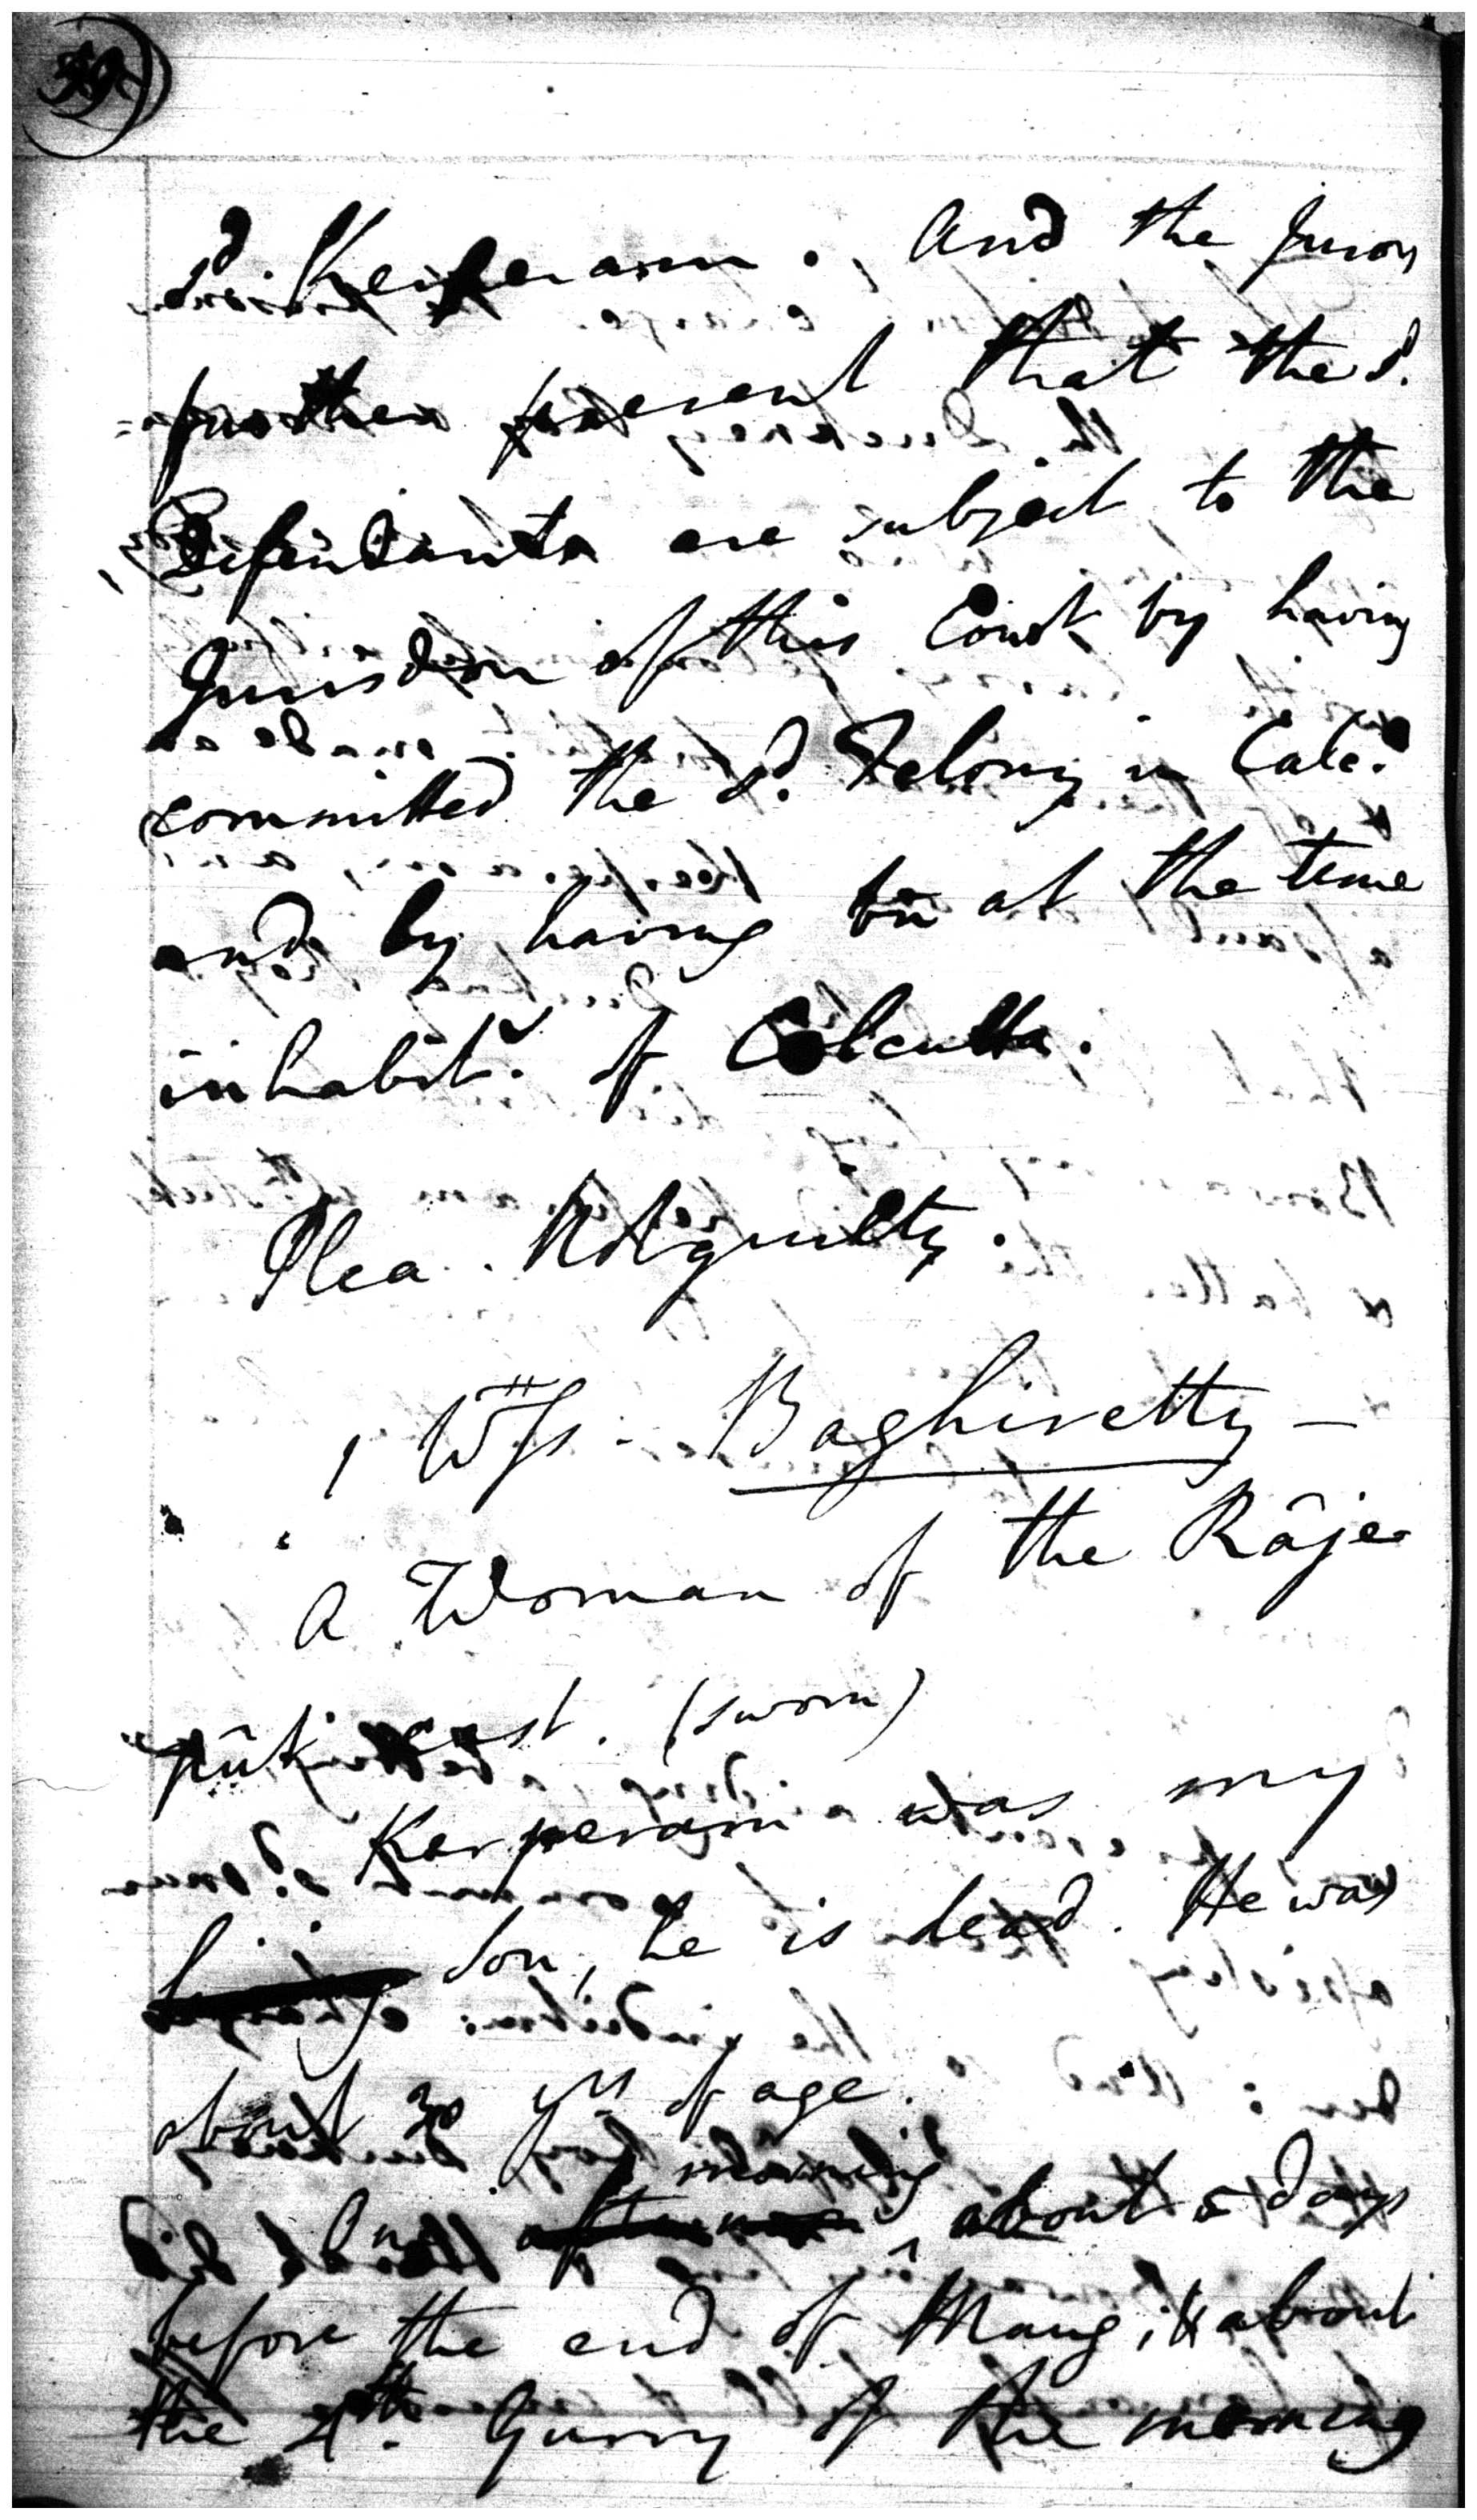 sd. Kerperam. And the Jurors
further present that the sd.
Defendants are subject to the
Jurisdon of this Court by having
committed the sd. Felony in Calc.
and by having bn at the time
inhabits. of Calcutta.
Plea. Not guilty.
1 Wss. Baghiretty —
A Woman of the Râje-
pûk cast. (sworn)
Kerperam was my
son, he is dead. He was
about 30 yrs of age.
On morning about 5 days
before the end of Maug, & about
the 4th. Gurry of the morning